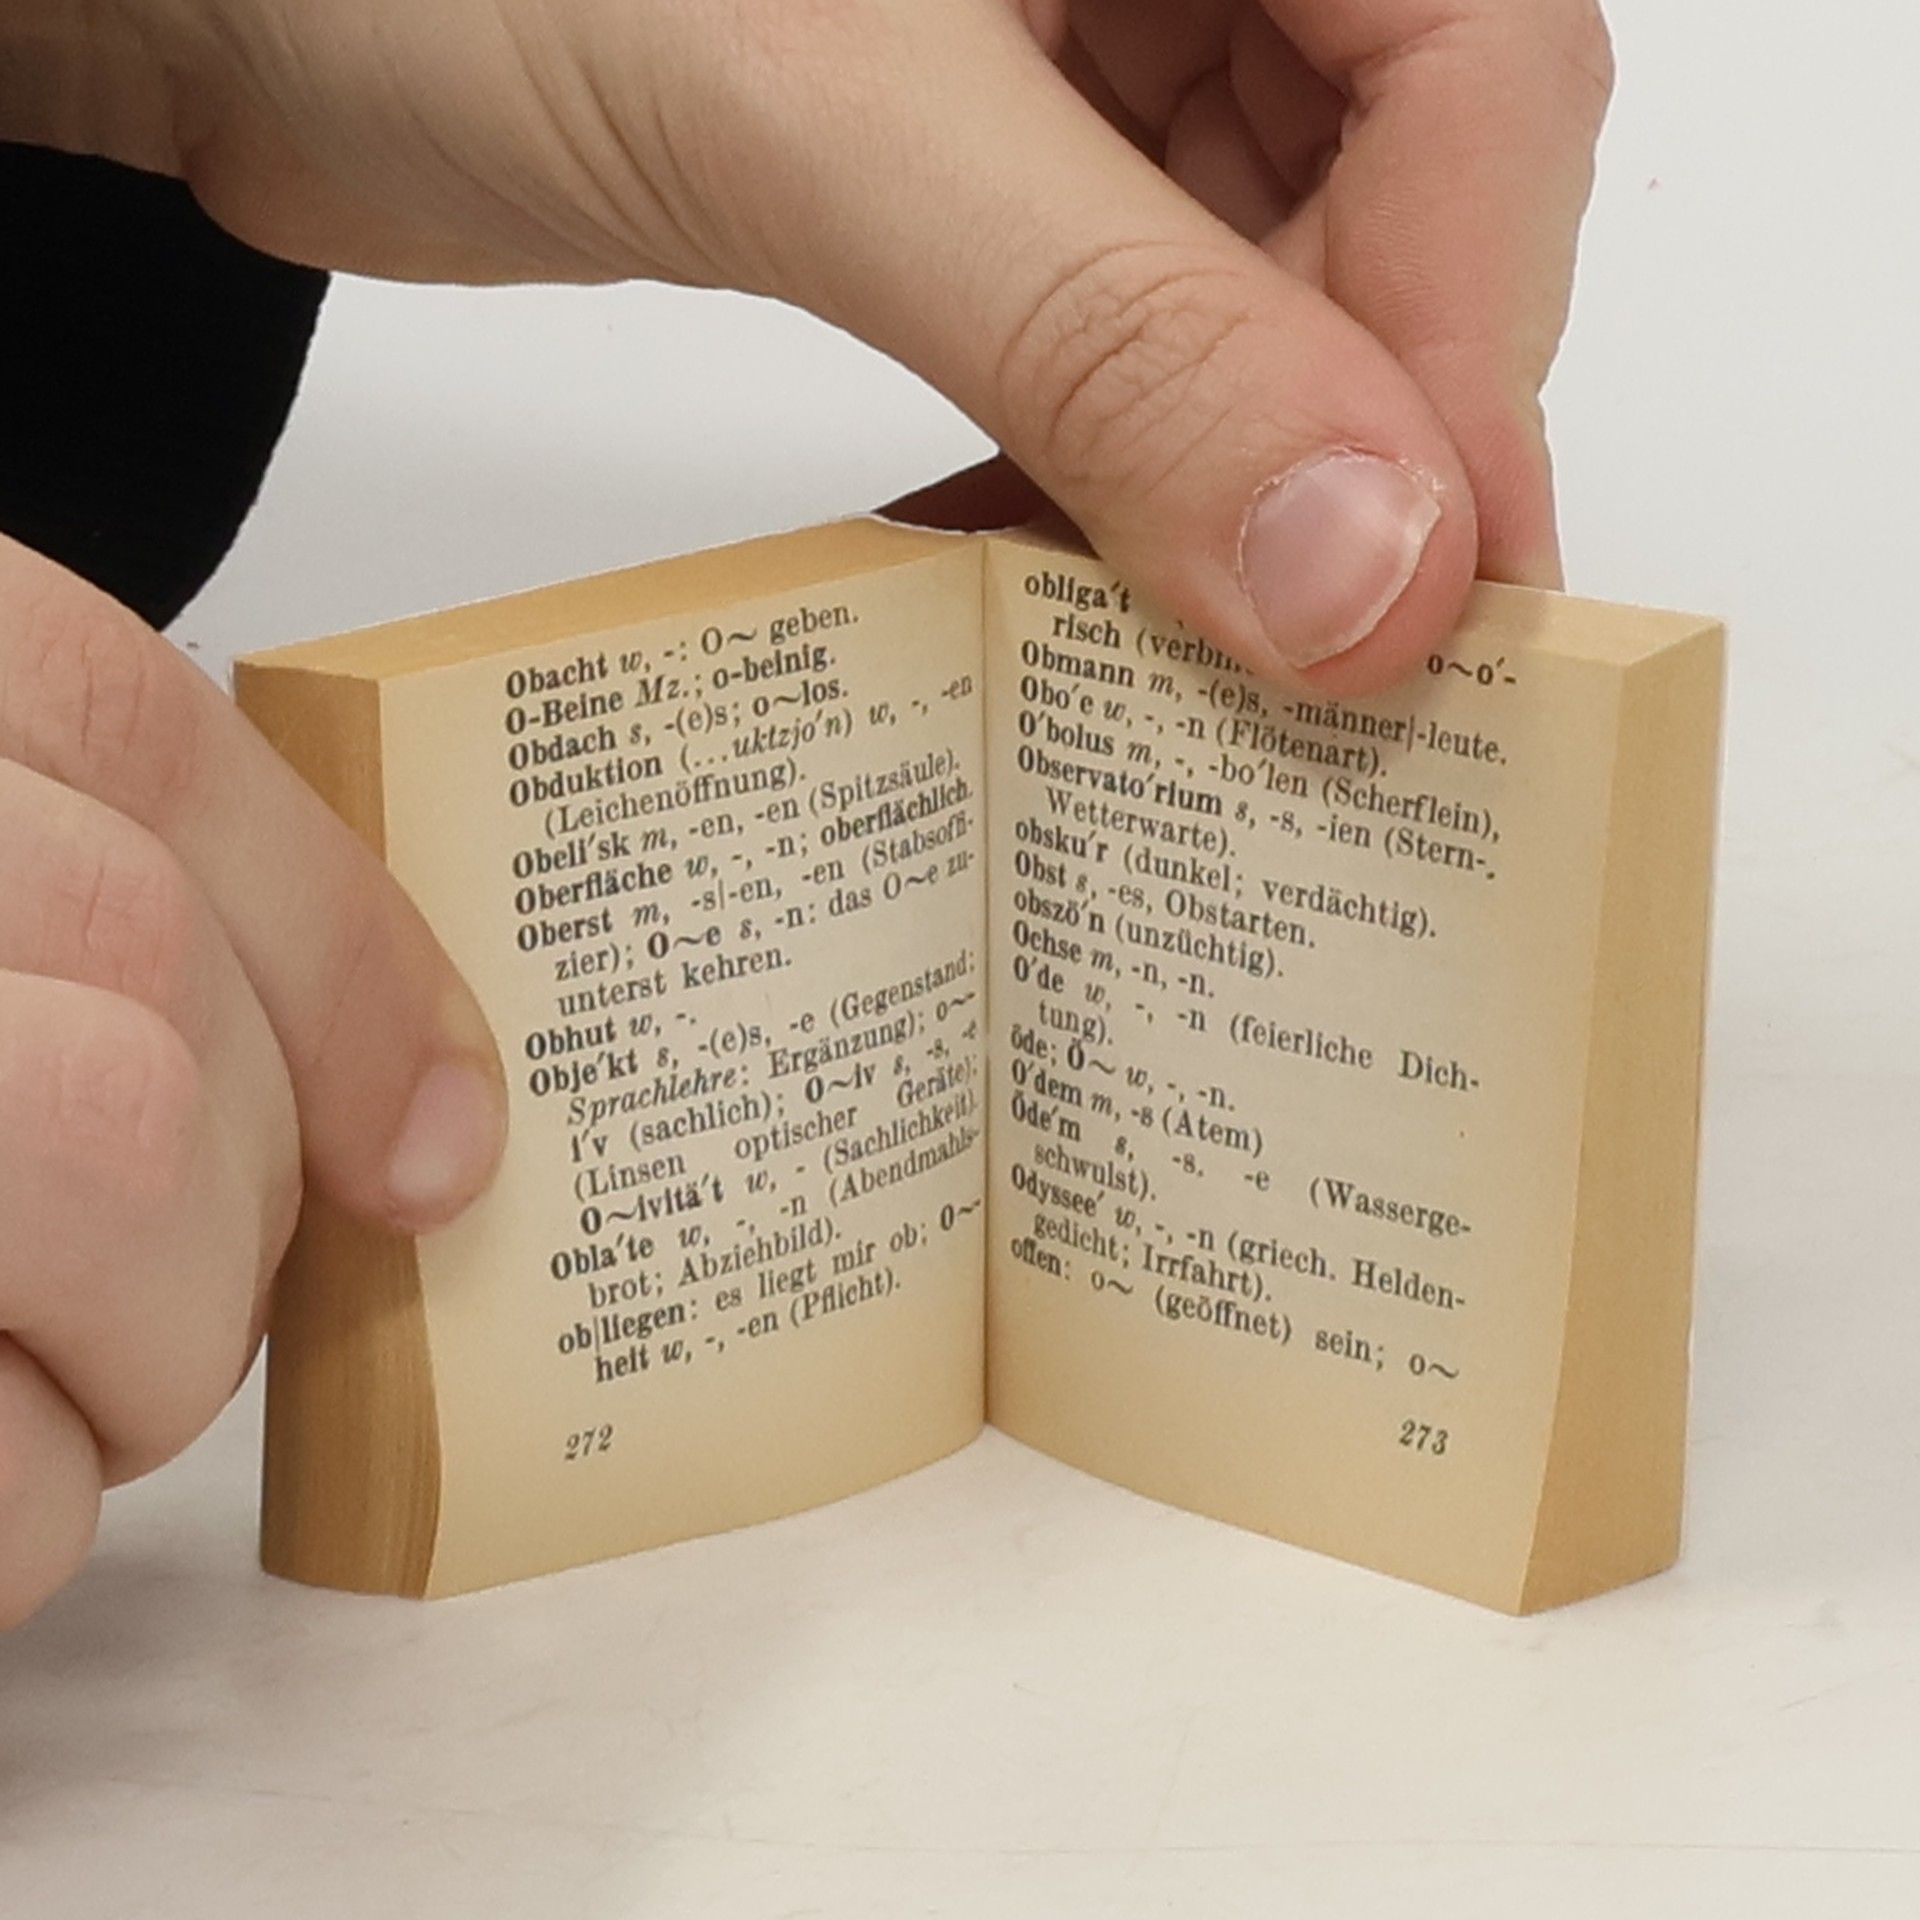 Obacht w, -: O~ geben.
O-Beine Mz.; o-beinig.
Obdach s, -(e)s; o~los.
Obduktion (...uktzjo′n) w, -, -en
(Leichenöffnung).
Obeli′sk m, -en, -en (Spitzsäule).
Oberfläche w, -, -n; oberflächlich.
Oberst m, -s|-en, -en (Stabsoffi-
zier); O~e s, -n: das O~e zu-
unterst kehren.
Obhut w, -.
Obje′kt s, -(e)s, -e (Gegenstand;
Sprachlehre: Ergänzung); o~-
i′v (sachlich); O~iv s, -s, -e
(Linsen optischer Geräte);
O~ivitä′t w, - (Sachlichkeit).
Obla′te w, -, -n (Abendmahls-
brot; Abziehbild).
ob|liegen: es liegt mir ob; O~-
heit w, -, -en (Pflicht).
272
obliga′t
risch o~o′-
Obmann m, -(e)s, -männer|-leute.
Obo′e w, -, -n (Flötenart).
O′bolus m, -, -bo′len (Scherflein),
Observato′rium s, -s, -ien (Stern-,
Wetterwarte).
obsku′r (dunkel; verdächtig).
Obst s, -es, Obstarten.
obszö′n (unzüchtig).
Ochse m, -n, -n.
O′de w, -, -n (feierliche Dich-
tung).
öde; Ö~ w, -, -n.
O′dem m, -s (Atem)
Öde′m s, -s. -e (Wasserge-
schwulst).
Odyssee′ w, -, -n (griech. Helden-
gedicht; Irrfahrt).
offen: o~ (geöffnet) sein; o~
273